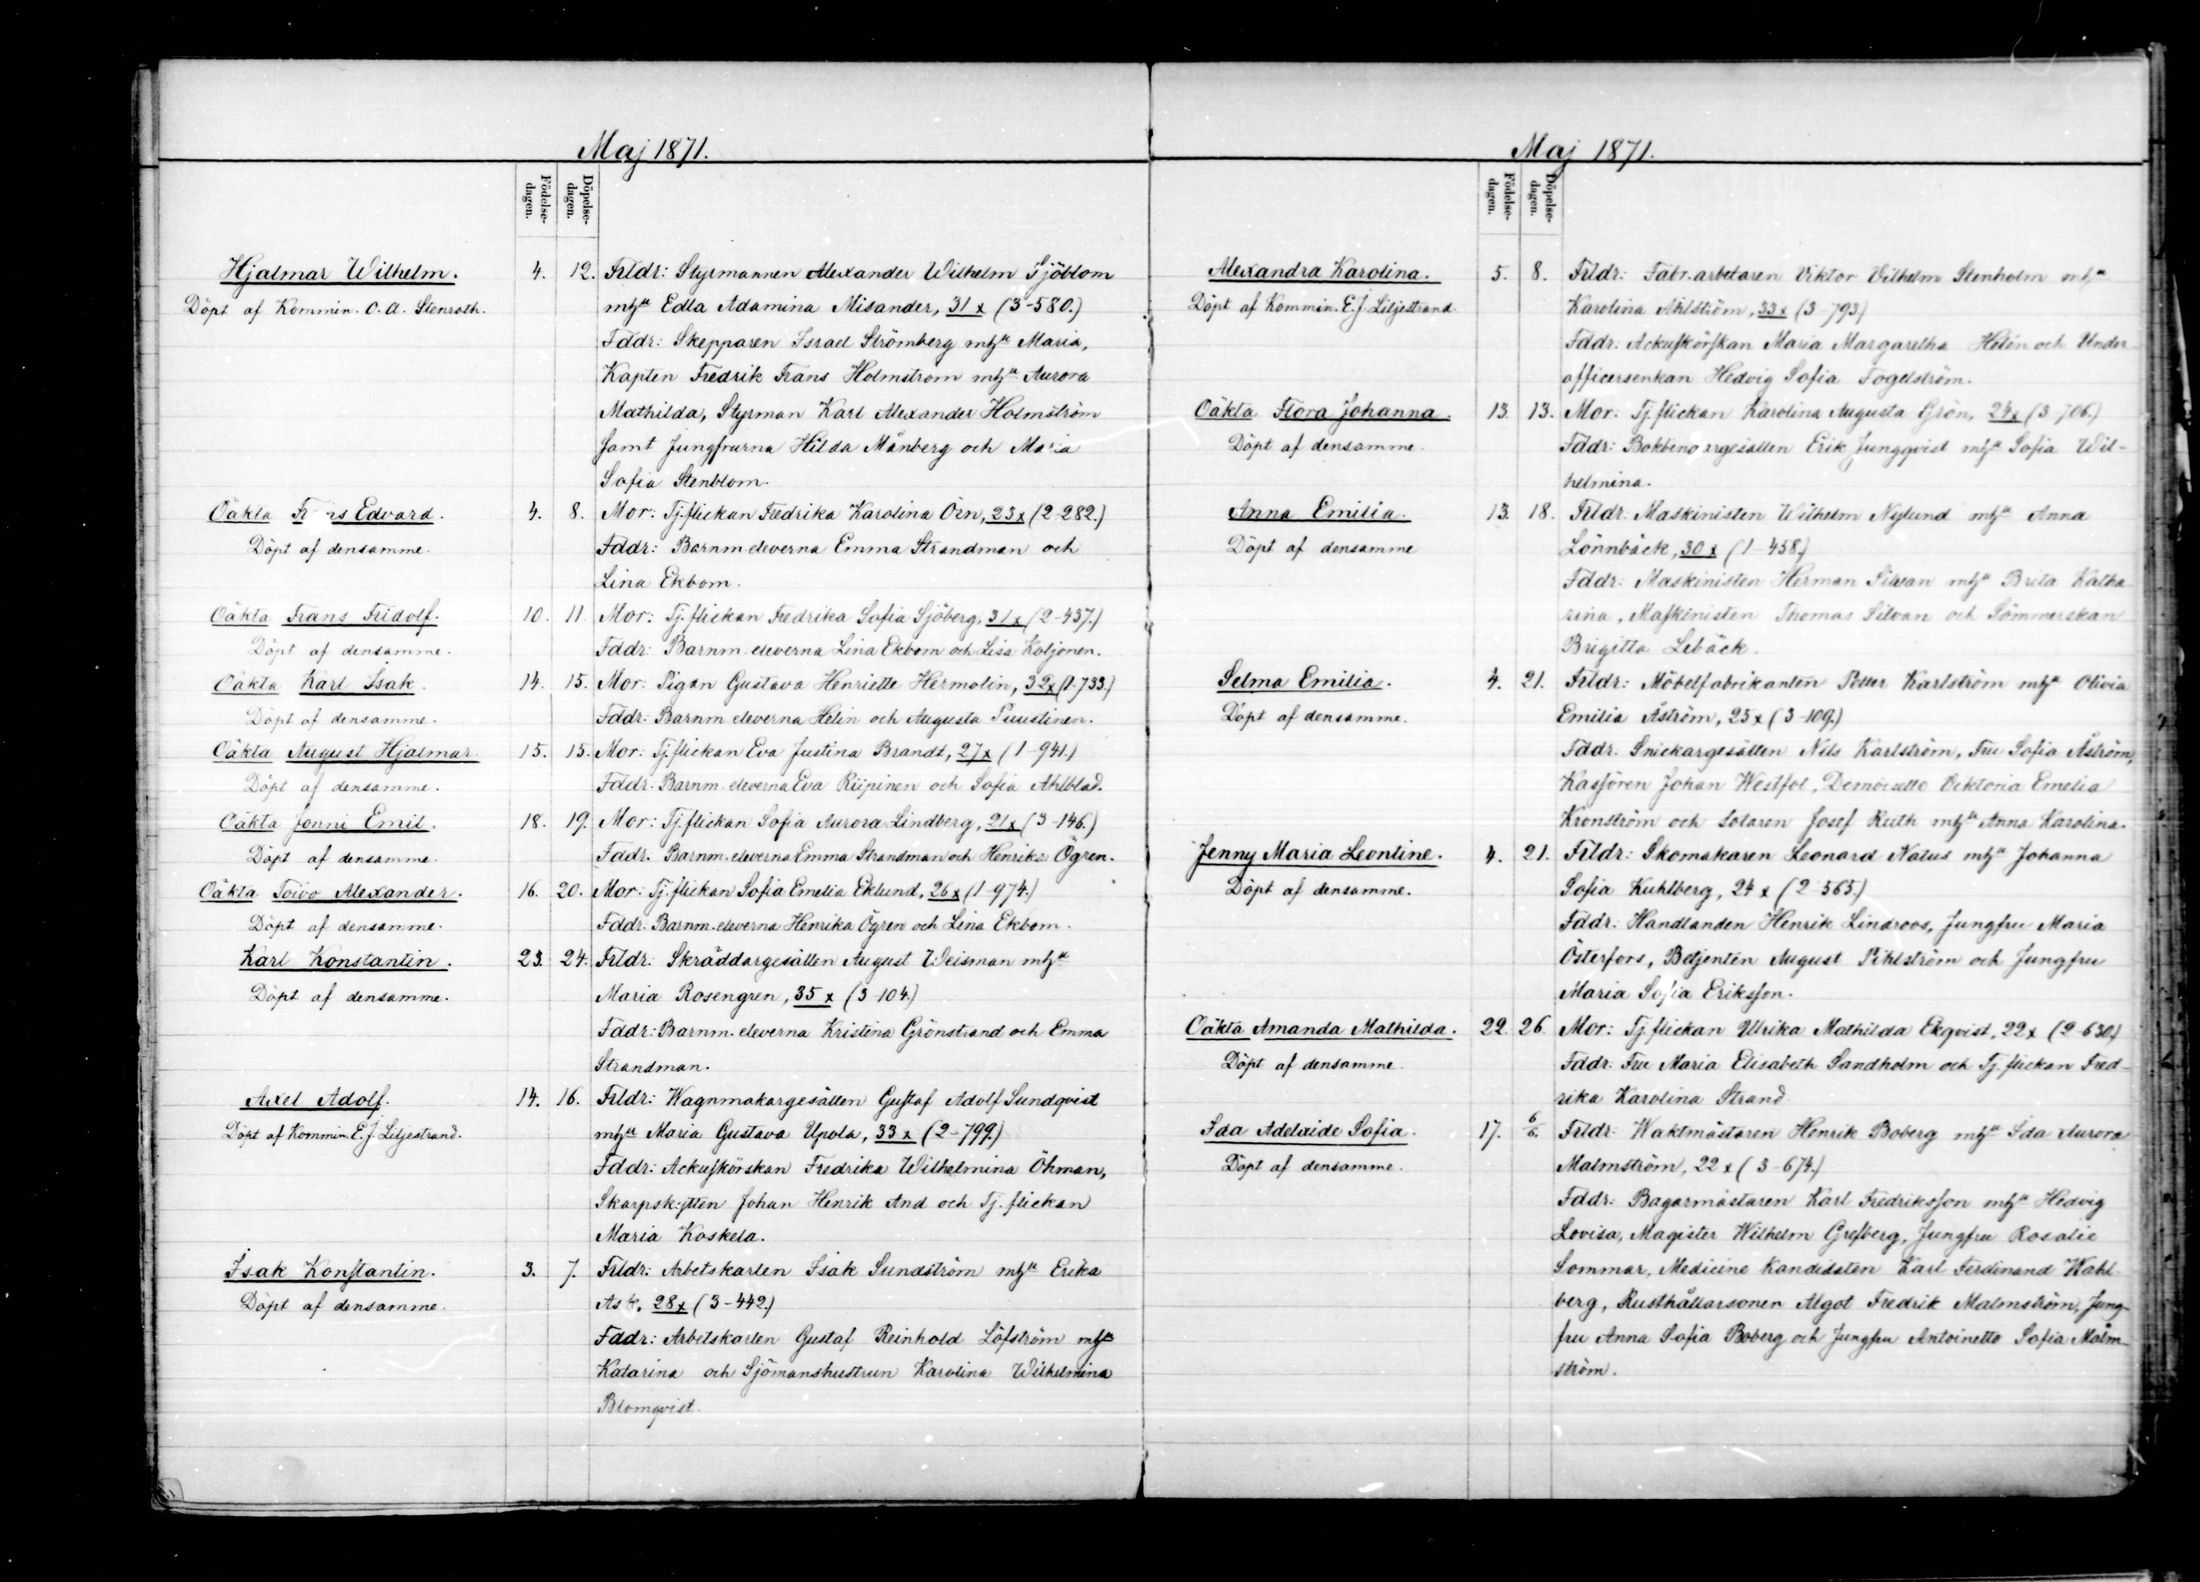 Maj 1871.
Födelse-
dagen.
Döpelse-
dagen.
Hjalmar Wilhelm. 4. 12. Frldr: Styrmannen Alexander Wilhelm Sjöblom
Döpt af Kommin. O. A. Stenroth. mhu Edla Adamina Misander, 31 x (3-580.)
Fddr: Skepparen Israel Strömberg mhu Maria,
Kapten Fredrik Frans Holmström mhu Aurora
Mathilda, Styrman Karl Alexander Holmström
samt Jungfrurna Hilda Månberg och Maria
Sofia Stenblom.
Oäkta Edvard. 4. 8. Mor: Tj.flickan Fredrika Karolina Örn, 23 x (2-282.)
Döpt af densamme. Fddr: Barnm.eleverna Emma Strandman och
Lina Ekbom.
Oäkta Frans Fridolf. 10. 11. Mor: Tj.flickan Fredrika Sofia Sjöberg, 31 x (2-437.)
Döpt af densamme. Fddr: Barnm.eleverna Lina Ekbom och Lisa Koljonen.
Oäkta Karl Isak. 14. 15. Mor: Pigan Gustava Henriette Hermolin, 32 x (1-733.)
Döpt af densamme. Fddr: Barnm eleverna Helin och Augusta Puustinen.
Oäkta August Hjalmar. 15. 15. Mor: Tj.flickan Eva Justina Brandt, 27 x (1-941.)
Döpt af densamme. Fddr: Barnm.eleverna Eva Riipinen och Sofia Ahlblad.
Oäkta Jonni Emil. 18. 19. Mor: Tj.flickan Sofia Aurora Lindberg, 21 x (3-146.)
Döpt af densamme. Fddr. Barnm.eleverna Emma Strandman och Henrika Ögren.
Oäkta Toivo Alexander. 16. 20. Mor: Tj.flickan Sofia Emelia Eklund, 26 x (1-974.)
Döpt af densamme. Fddr: Barnm.eleverna Henrika Ögren och Lina Ekbom.
Karl Konstantin. 23. 24. Frldr: Skräddargesällen August Weisman mhu
Döpt af densamme. Maria Rosengren, 35 x (3-104.)
Fddr: Barnm.eleverna Kristina Grönstrand och Emma
Strandman.
Axel Adolf. 14. 16. Frldr: Wagnmakargesällen Gustaf Adolf Sundqvist
Döpt af Kommin. E. J. Liljestrand. mhu Maria Gustava Upola, 33 x (2-799.)
Fddr: Ackuskörskan Fredrika Wilhelmina Öhman,
Skarpskytten Johan Henrik And och Tj.flickan
Maria Koskela.
Isak Konstantin. 3. 7. Frldr: Arbetskarlen Isak Sundström mhu Erika
Döpt af densamme. Ask, 28 x (3-442.)
Fddr: Arbetskarlen Gustaf Reinhold Löfström mhu
Katarina och Sjömanshustrun Karolina Wilhelmina
Blomqvist.
Maj 1871.
Födelse-
dagen.
Döpelse-
dagen.
Alexandra Karolina. 5. 8. Frldr: Fabr.arbetaren Viktor Vilhelm Stenholm mhu
Döpt af Kommin. E. J. Liljestrand. Karolina Ahlström, 33 x (3-793)
Fddr: Ackuskörskan Maria Margaretha Helén och Under-
officersenkan Hedvig Sofia Fogelström.
Oäkta Flora Johanna. 13. 13. Mor: Tj.flickan Karolina Augusta Grön, 24 x (3-706.)
Döpt af densamme. Fddr: Bokbindaregesällen Erik Jungqvist mhu Sofia Wil-
helmina.
Anna Emilia. 13. 18. Frldr: Maskinisten Wilhelm Nylund mhu Anna
Döpt af densamme Lönnbäck, 30 x (1-458.)
Fddr: Maskinisten Herman Silvan mhu Brita Katha-
rina, Maskinisten Thomas Silvan och Sömmerskan
Brigitta Lebäck.
Selma Emilia. 4. 21. Frldr: Möbelfabrikanten Petter Karlström mhu Olivia
Döpt af densamme. Emilia Åström, 25 x (3-109.)
Fddr: Snickargesällen Nils Karlström, Fru Sofia Åström,
Kassören Johan Westfol, Demoiselle Viktoria Emelia
Kronström och Josef Ruth mhu Anna Karolina.
Jenny Maria Leontine. 4. 21. Frldr: Skomakaren Leonard Natus mhu Johanna
Döpt af densamme. Sofia Kuhlberg, 24 x (2-565.)
Fddr: Handlanden Henrik Lindroos, Jungfru Maria
Österfors, Betjenten August Pihlström och Jungfru
Maria Sofia Eriksson.
Oäkta Amanda Mathilda. 22. 26. Mor: Tj.flickan Ulrika Mathilda Ekqvist, 22 x (2-630.)
Döpt af densamme. Fddr: Fru Maria Elisabeth Sandholm och Tj.flickan Fred-
rika Karolina Strand.
Ida Adelaide Sofia. 17. 6/6. Frldr: Waktmästaren Henrik Boberg mhu Ida Aurora
Döpt af densamme. Malmström, 22 x (3-674.)
Fddr: Bagarmästaren Karl Fredriksson mhu Hedvig
Lovisa, Magister Wilhelm Grefberg, Jungfru Rosalie
Sommar, Medicine Kandidaten Karl Ferdinand Wahl-
berg, Rusthållarsonen Algot Fredrik Malmström, Jung-
fru Anna Sofia Boberg och Jungfru Antoinette Sofia Malm-
ström.